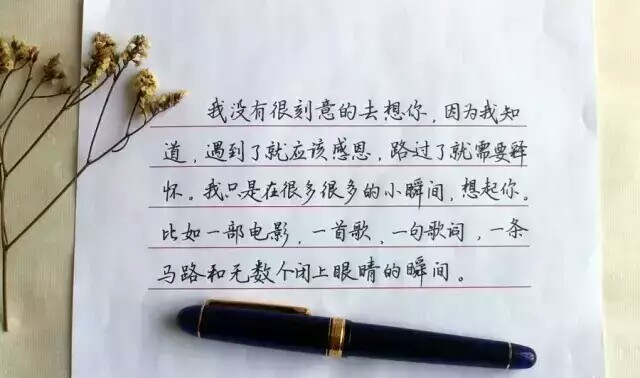 我没有很刻意的去想你，因为我知
道，遇到了就应该感恩，路过了就需要释
怀。我只是在很多很多的小瞬间，想起你。
比如一部电影，一首歌，一句歌词，一条
马路和无数个闭上眼睛的瞬间。